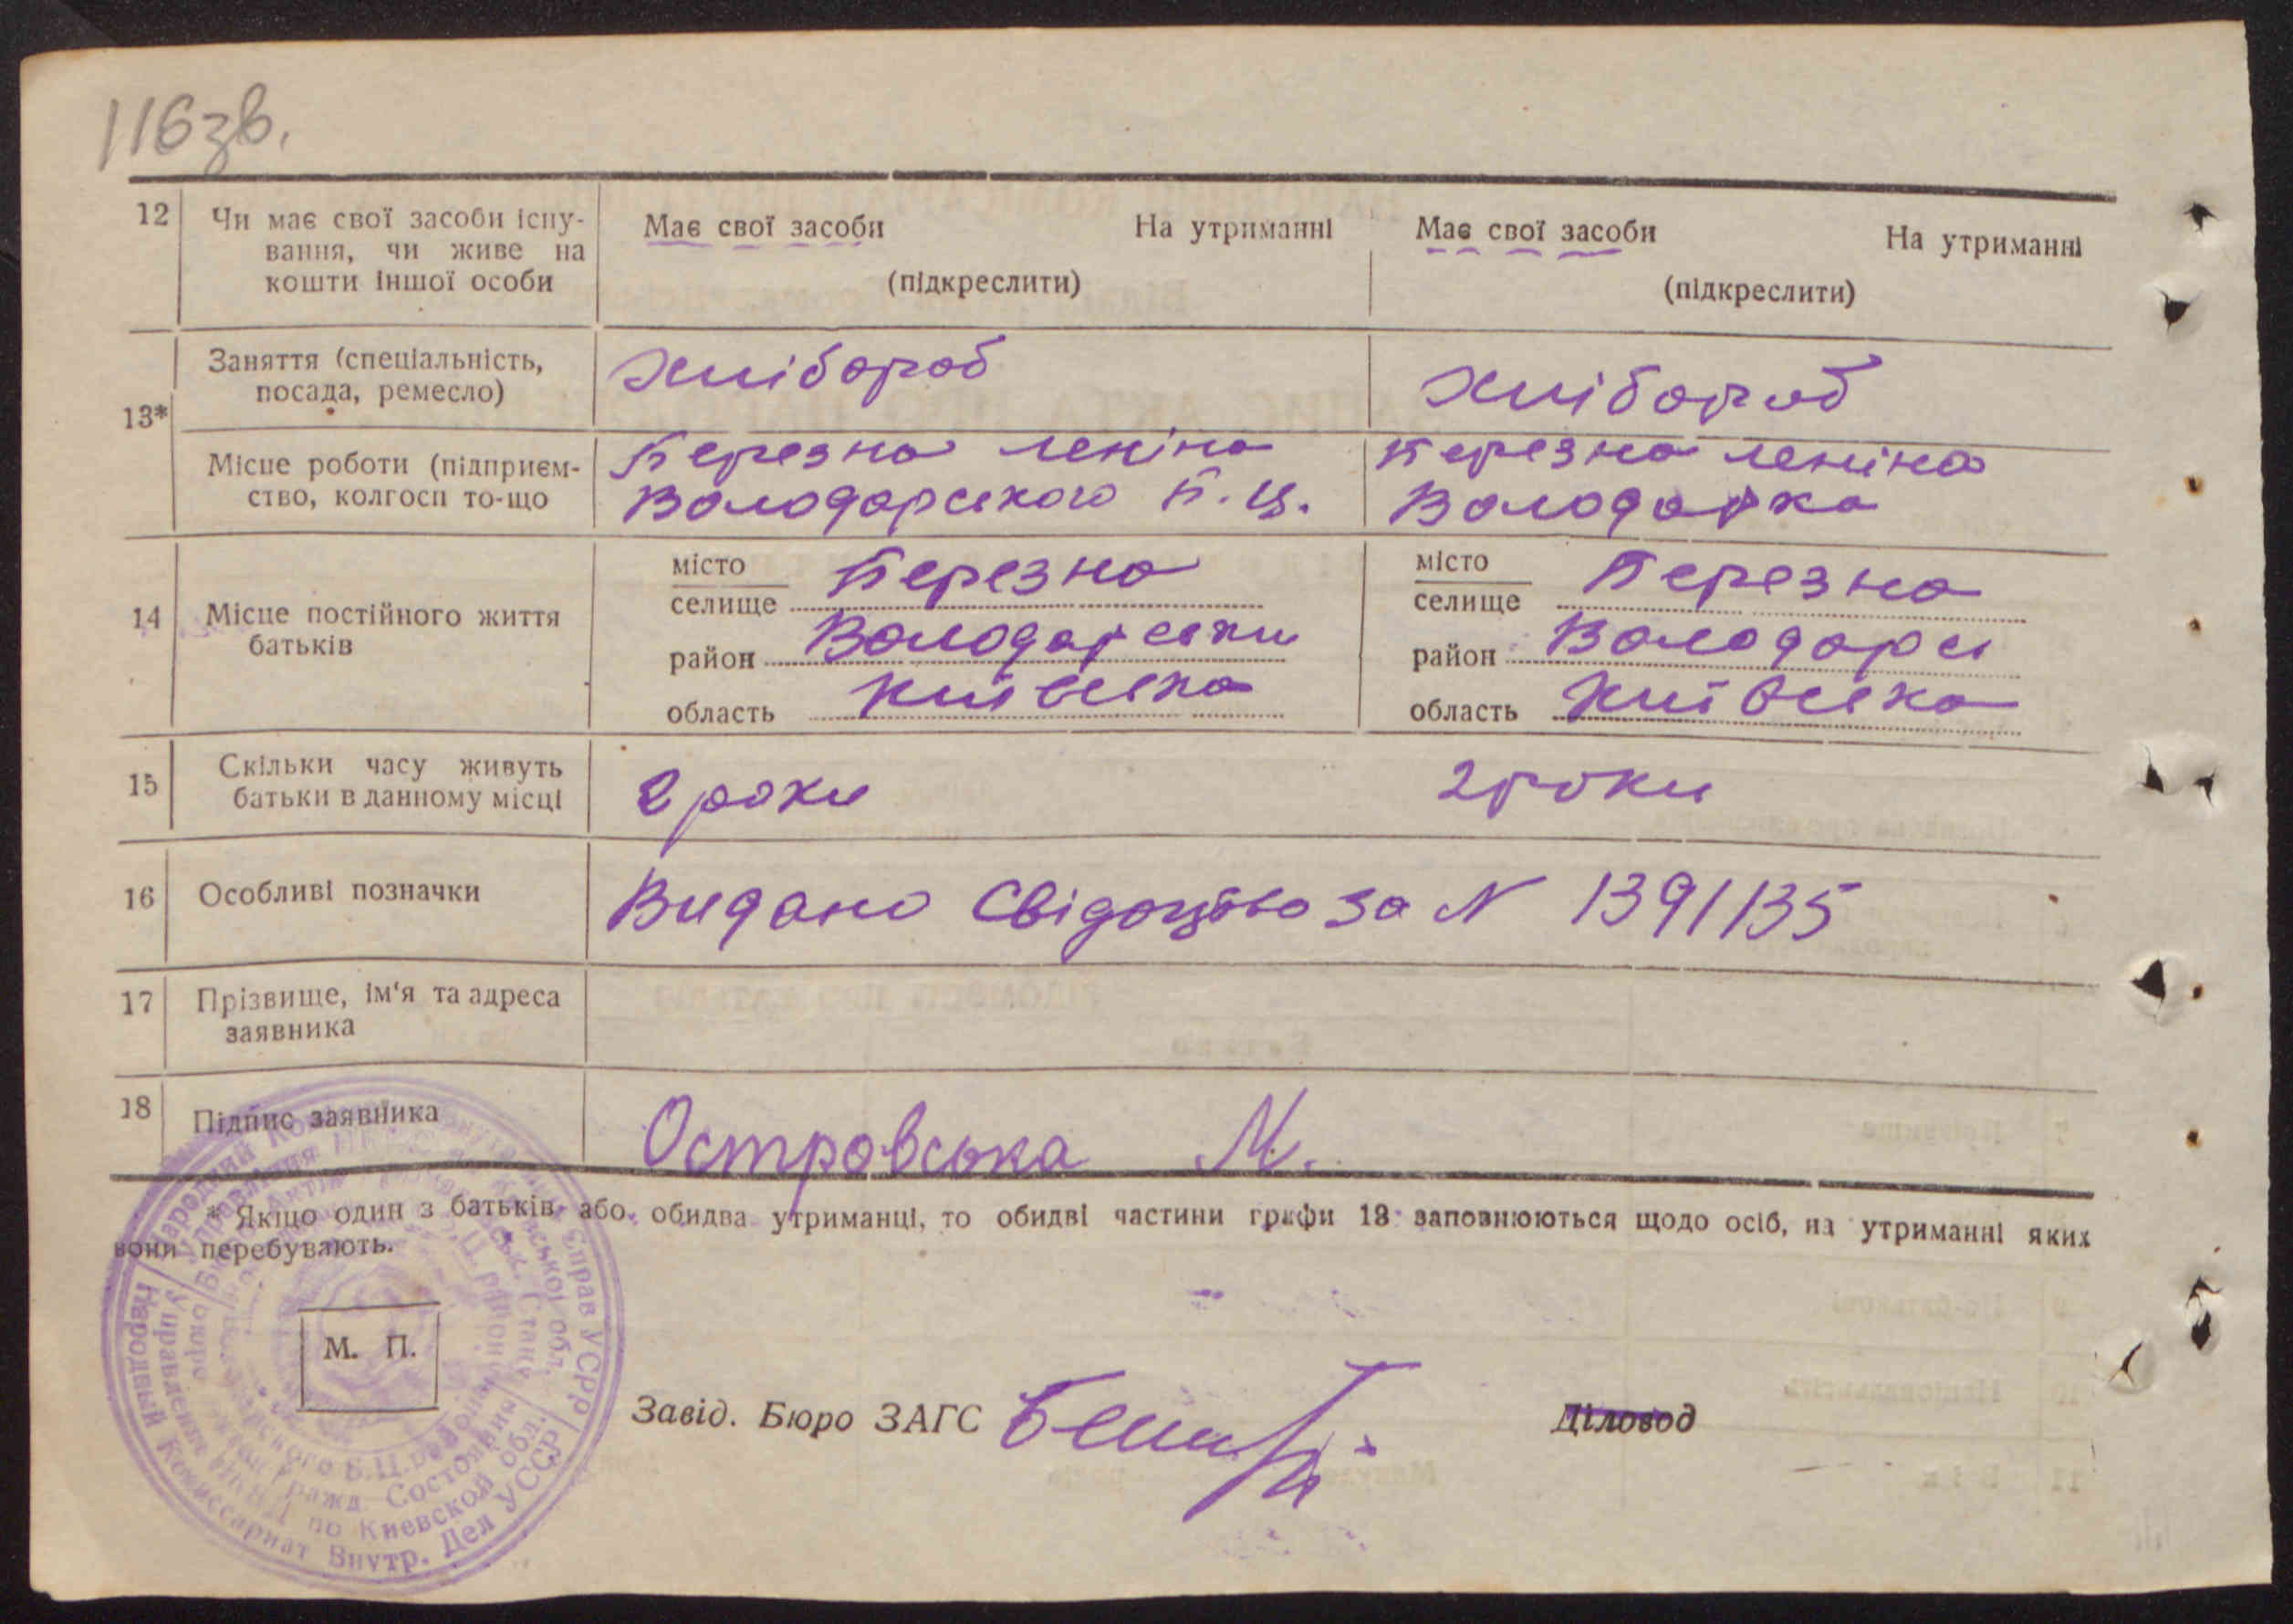 116зв.
12 Чи має свої засоби існу-
вання, чи живе на
кошти іншої особи
Має свої засоби На утриманні
(підкреслити)
Має свої засоби На утриманні
(підкреслити)
13*
Заняття (спеціальність,
посада, ремесло)
Хлібороб
Хлібороб
Місце роботи (підприєм-
ство, колгосп то-що
Березна леніна
Володарського
Березна леніна
Володарка
14 Місце постійного життя
батьків
місто
селище Березна
район Володарськи
область Київська
місто
селище Березна
район Володарс
область Київська
15 Скільки часу живуть
батьки в данному місці
2 роки
2 роки
16 Особливі позначки
Видано Свідоцтво за N 1391135
17 Прізвище, ім'я та адреса
заявника
18 Підпис заявника
Островська М.
* Якщо один з батьків або обидва утриманці, то обидві частини графи 13 заповнюються щодо осіб, на утриманні яких
вони перебувають.
М. П.
Завід. Бюро ЗАГС
Діловод
Народный Комиссариат Внутр. Дел УССР
Управление НКВД по Киевской обл.